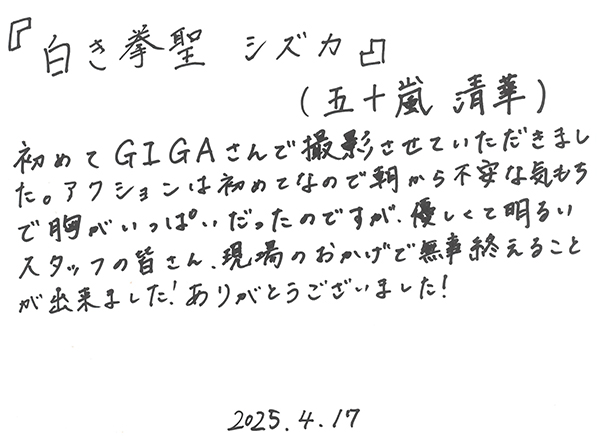 『白き拳聖 シズカ』
(五十嵐 清華)
初めてGIGAさんで撮影させていただきまし
た。アクションは初めてなので朝から不安な気もち
で胸がいっぱいだったのですが、優しくて明るい
スタッフの皆さん、現場のおかげで無事終えること
が出来ました!ありがとうございました!
2025.4.17